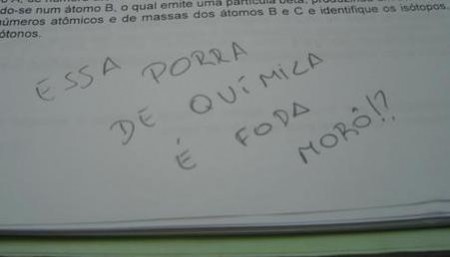 do-se num átomo B, o qual emite uma partícula beta,
números atômicos e de massas dos átomos B e C e identifique os isótopos,
ótonos.
ESSA PORRA
DE QUÍMICA
É FODA
MORÔ!?